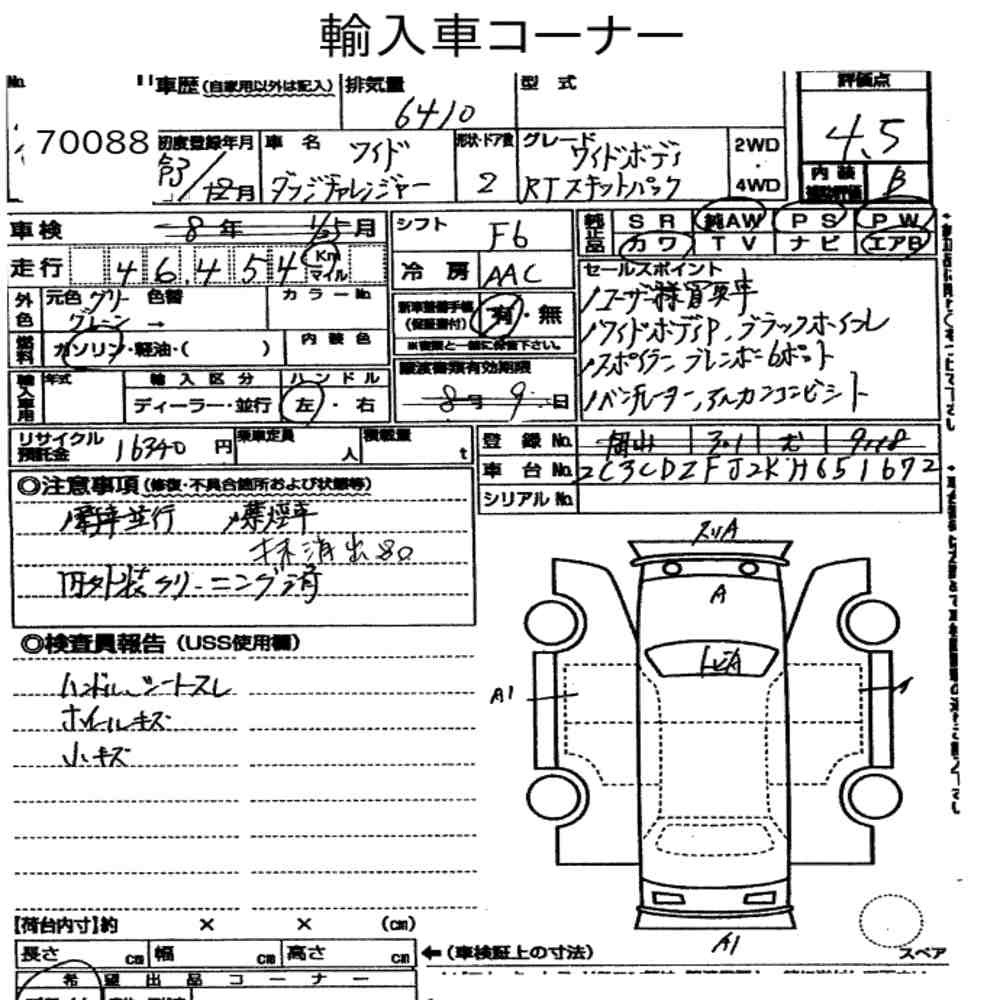 輸入車コーナー
No. 車歴 (自家用以外は記入) 排気量 型式 評価点
6410
4.5
70088 初度登録年月 車名 形状・ドア数 グレード 2WD
ワイド ワイドボディ ・
R3/12月 ダッジチャレンジャー 2 RTスキャットパック 4WD
内装 B
車検 8年 月 シフト F6 純正品 SR 純AW PS PW
カワ TV ナビ エアB
走行 46,454 Km マイル 冷房 AAC セールスポイント
外色 元色 グリーン 色替 カラーNo.
新車整備手帳 (保証書付) 有・無
ユーザー様買取車
ワイドボディP、ブラックホイール
燃料 ガソリン・軽油・( ) 内装色 ※書類と一緒に保管下さい。
スポイラー ブレンボ 6ポット
譲渡書類有効期限
輸入車用 年式 輸入区分 ハンドル
ディーラー・並行 左・右 8月 9日
ベンチレーター、アルカンコンビシート
リサイクル預託金 16340円 乗車定員 人 積載量 t 登録No. 岡山 301 む 9118
車台No. 2C3CDZFJ2KH651672
シリアルNo.
◎注意事項 (修復・不具合箇所および状態等)
新車並行 禁煙車
抹消出80
内外装クリーニング済
スリA
A
トビA
A1
◎検査員報告 (USS使用欄)
ハンドル、シートスレ
ホイールキズ
小キズ
A1
スペア
【荷台内寸】約 × × (cm)
長さ cm 幅 cm 高さ cm ←(車検証上の寸法)
希望出品コーナー